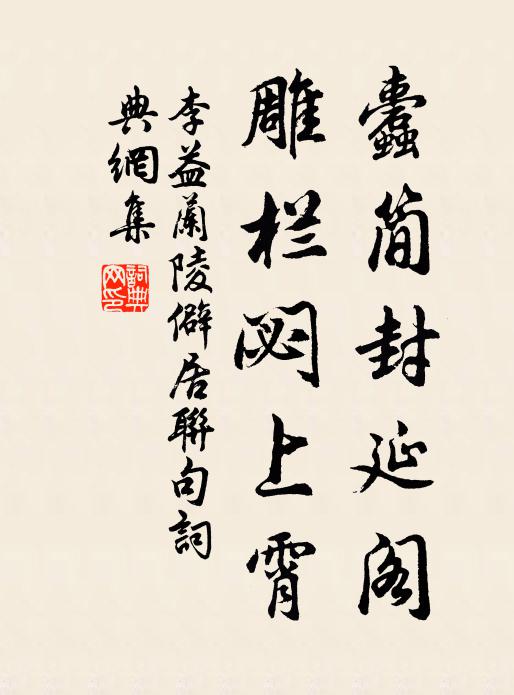 蠹简封延阁
雕栏閟上霄
李益蘭陵僻居聯句詞
典網集
詞典
网印